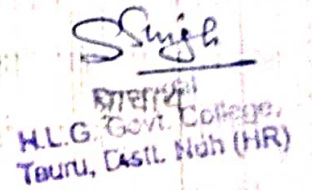 SSingh
प्राचार्य
H.L.G. Govt. College,
Tauru, Distt. Nuh (HR)